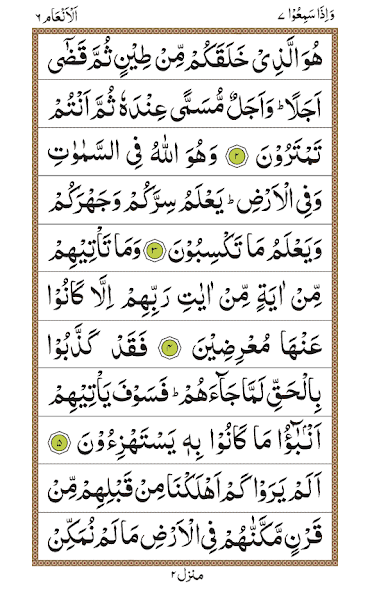 وَاِذَا سَمِعُوْا ٧
اَلْاَنْعَام ٦
هُوَ الَّذِیْ خَلَقَكُمْ مِّنْ طِیْنٍ ثُمَّ قَضٰۤی
اَجَلًا ؕ وَاَجَلٌ مُّسَمًّی عِنْدَهٗ ثُمَّ اَنْتُمْ
تَمْتَرُوْنَ ۝۲ وَهُوَ اللّٰهُ فِی السَّمٰوٰتِ
وَفِی الْاَرْضِ ؕ یَعْلَمُ سِرَّكُمْ وَجَهْرَكُمْ
وَیَعْلَمُ مَا تَكْسِبُوْنَ ۝۳ وَمَا تَاْتِیْهِمْ
مِّنْ اٰیَةٍ مِّنْ اٰیٰتِ رَبِّهِمْ اِلَّا كَانُوْا
عَنْهَا مُعْرِضِیْنَ ۝۴ فَقَدْ كَذَّبُوْا
بِالْحَقِّ لَمَّا جَآءَهُمْ ؕ فَسَوْفَ یَاْتِیْهِمْ
اَنْۢبٰٓؤُا مَا كَانُوْا بِهٖ یَسْتَهْزِءُوْنَ ۝۵
اَلَمْ یَرَوْا كَمْ اَهْلَكْنَا مِنْ قَبْلِهِمْ مِّنْ
قَرْنٍ مَّكَّنّٰهُمْ فِی الْاَرْضِ مَا لَمْ نُمَكِّنْ
منزل ۲